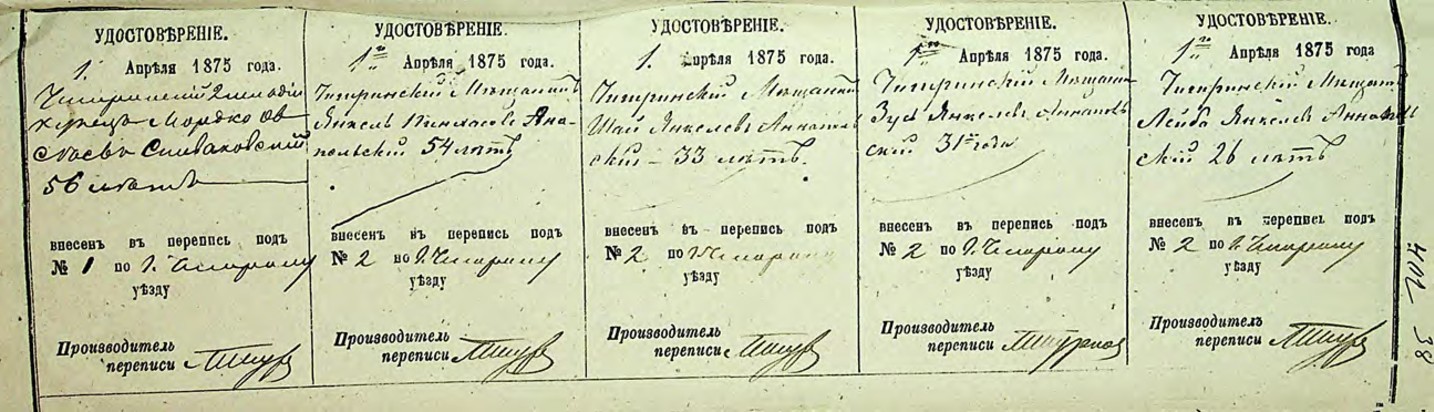 УДОСТОВѢРЕНІЕ.
1. Апрѣля 1875 года.
Чигиринскій 2 гильдіи
купецъ Мордко Ов
сѣевъ Сливаковскій
56 лѣтъ
внесенъ въ перепись подъ
№ 1 по г. Чигирину
уѣзду
Производитель
переписи
УДОСТОВѢРЕНІЕ.
1го Апрѣля 1875 года.
Чигиринскій Мѣщанинъ
Янкель Пинхасовъ Ана-
польскій 54 лѣтъ
внесенъ въ перепись подъ
№ 2 по г. Чигирину
уѣзду
Производитель
переписи
УДОСТОВѢРЕНІЕ.
1. Апрѣля 1875 года.
Чигиринскій Мѣщанинъ
Шая Янкелевъ Аннополь
скій - 33 лѣтъ.
внесенъ въ перепись подъ
№ 2 по г. Чигирину
уѣзду
Производитель
переписи
УДОСТОВѢРЕНІЕ.
1го Апрѣля 1875 года.
Чигиринскій Мѣщанин
Зусь Янкелевъ Аннополь
скій 31 года
внесенъ въ перепись подъ
№ 2 по г. Чигирину
уѣзду
Производитель
переписи
УДОСТОВѢРЕНІЕ.
1го Апрѣля 1875 года
Чигиринскій Мѣщан
Лейба Янкелевъ Аннополь
скій 26 лѣтъ
внесенъ въ перепись подъ
№ 2 по г. Чигирину
уѣзду
Производитель
переписи
38